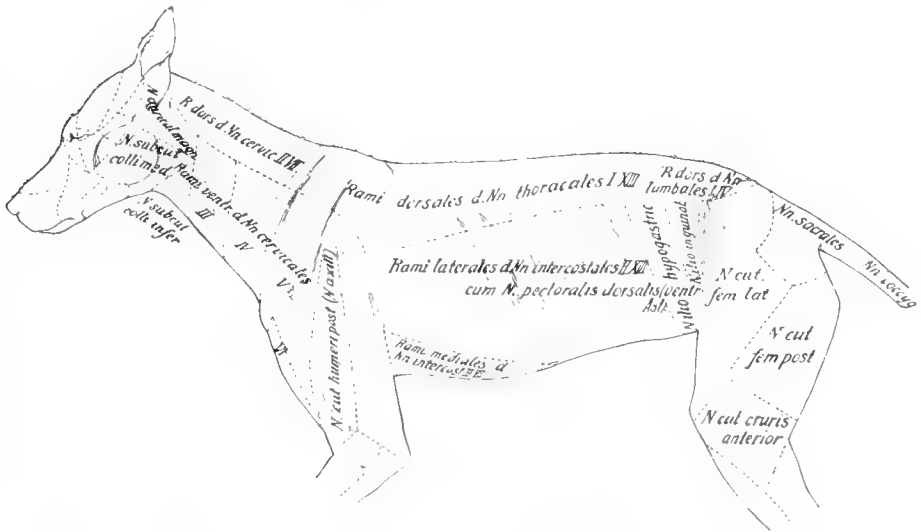 N auricul magn
R dors d. Nn cervic II VII
N. subcut
colli med.
N subcut
colli infer
Rami ventr d. Nn cervicales
III
IV
V
VI
Rami dorsales d. Nn thoracales I XIII
R dors d Nn
lumbales I. IV
Nn. sacrales
Nn coccyg
Rami laterales d. Nn intercostales II XII
cum N. pectoralis dorsalis (ventr
Ast)
N ilio hypogastric
N ilio inguinal
N cut.
fem lat
N cut
fem post
N cut cruris
anterior
N. cut humeri post (N axill)
Rami mediales d
Nn intercost